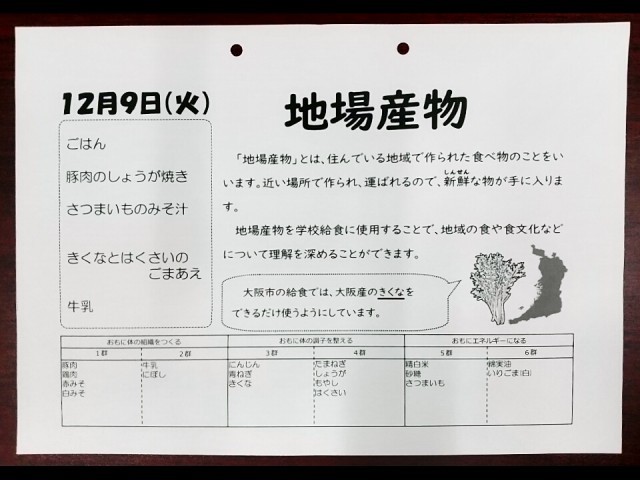 12月9日(火)
地場産物
ごはん
豚肉のしょうが焼き
さつまいものみそ汁
きくなとはくさいの
ごまあえ
牛乳
「地場産物」とは、住んでいる地域で作られた食べ物のことをい
います。近い場所で作られ、運ばれるので、新鮮な物が手に入りま
しんせん
す。
地場産物を学校給食に使用することで、地域の食や食文化など
について理解を深めることができます。
大阪市の給食では、大阪産のきくなを
できるだけ使うようにしています。
おもに体の組織をつくる おもに体の調子を整える おもにエネルギーになる
1群 2群 3群 4群 5群 6群
豚肉 牛乳 にんじん たまねぎ 精白米 綿実油
鶏肉 にぼし 青ねぎ しょうが 砂糖 いりごま(白)
赤みそ きくな もやし さつまいも
白みそ はくさい